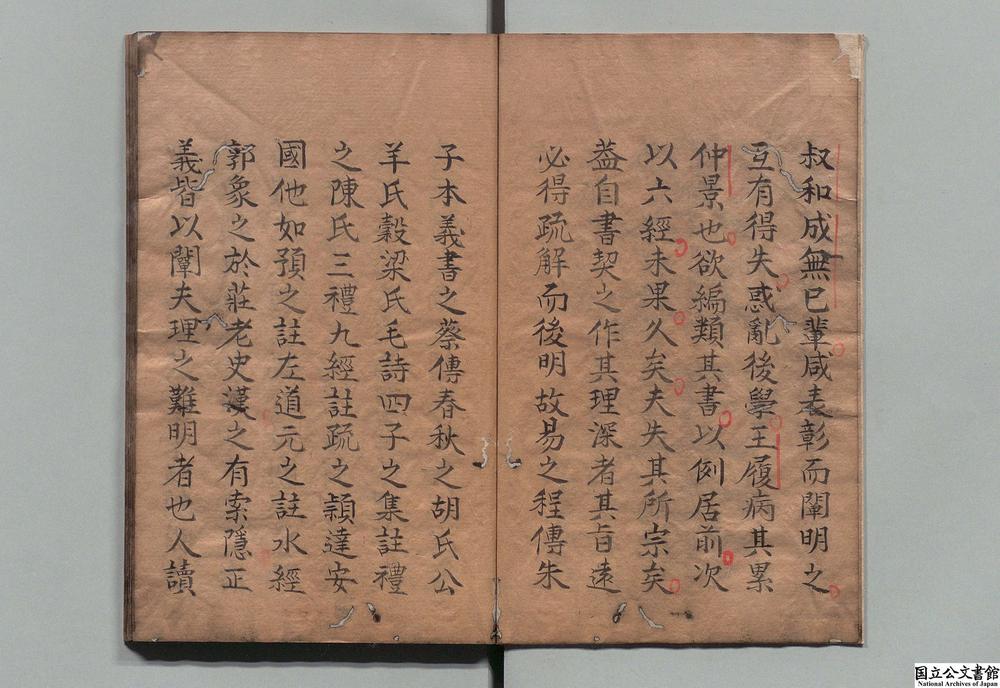 叔和成無已輩咸表彰而闡明之
互有得失惑亂後學王履病其累
仲景也欲編類其書以例居前次
以六經未果久矣夫失其所宗矣
葢自書契之作其理深者其旨遠
必得疏解而後明故易之程傳朱
子本義書之蔡傳春秋之胡氏公
羊氏穀梁氏毛詩四子之集註禮
之陳氏三禮九經註疏之穎達安
國他如預之註左道元之註水經
郭象之於莊老史漢之有索隱正
義皆以闡夫理之難明者也人讀
国立公文書館
National Archives of Japan